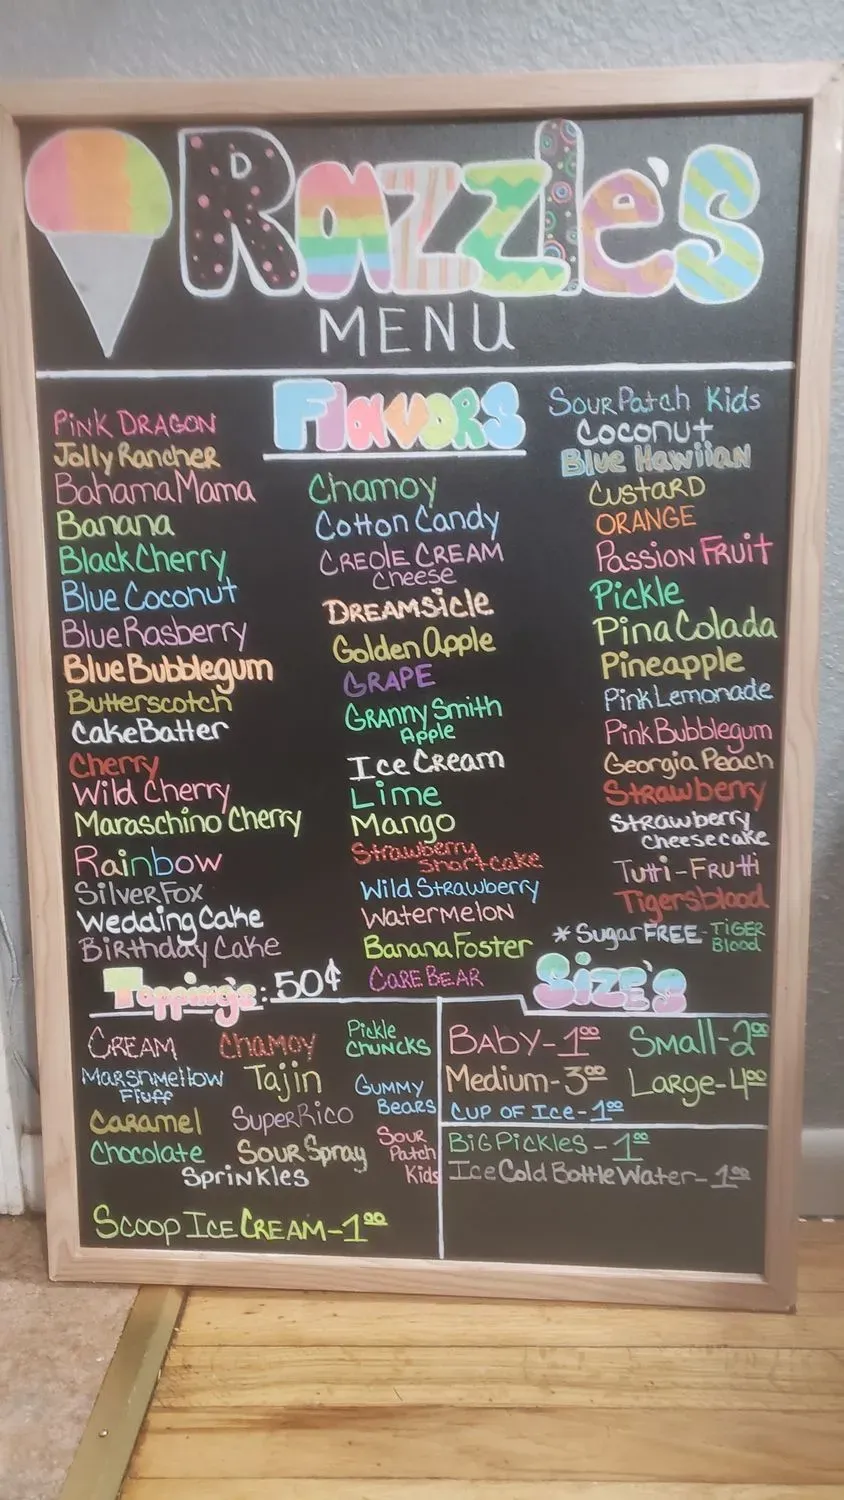 Razzle's
MENU
Flavors
PINK DRAGON
Jolly Rancher
Bahama Mama
Banana
Black Cherry
Blue Coconut
Blue Rasberry
Blue Bubblegum
Butterscotch
Cake Batter
Cherry
Wild Cherry
Maraschino Cherry
Rainbow
Silver Fox
Wedding Cake
Birthday Cake
Chamoy
Cotton Candy
CREOLE CREAM
Cheese
DREAMSicle
Golden Apple
GRAPE
GRANNY Smith
Apple
Ice Cream
Lime
Mango
Strawberry
Shortcake
Wild Strawberry
Watermelon
Banana Foster
CARE BEAR
Sour Patch Kids
Coconut
Blue Hawiian
CUSTARD
ORANGE
Passion Fruit
Pickle
Pina Colada
Pineapple
Pink Lemonade
Pink Bubblegum
Georgia Peach
Strawberry
Strawberry
Cheesecake
Tutti-Frutti
Tigersblood
* Sugar FREE - TIGER
Blood
Topping's: 50¢
CREAM
Chamoy
Pickle
Chuncks
Marshmellow
Fluff
Tajin
Gummy
Bears
Caramel
SuperRico
Chocolate
Sour Spray
Sour
Patch
Kids
Sprinkles
Scoop Ice Cream-1⁰⁰
Size's
BABY-1⁰⁰ Small-2⁰⁰
Medium-3⁰⁰ Large-4⁰⁰
CUP OF Ice-1⁰⁰
BIG Pickles-1⁰⁰
Ice Cold Bottle Water-1⁰⁰